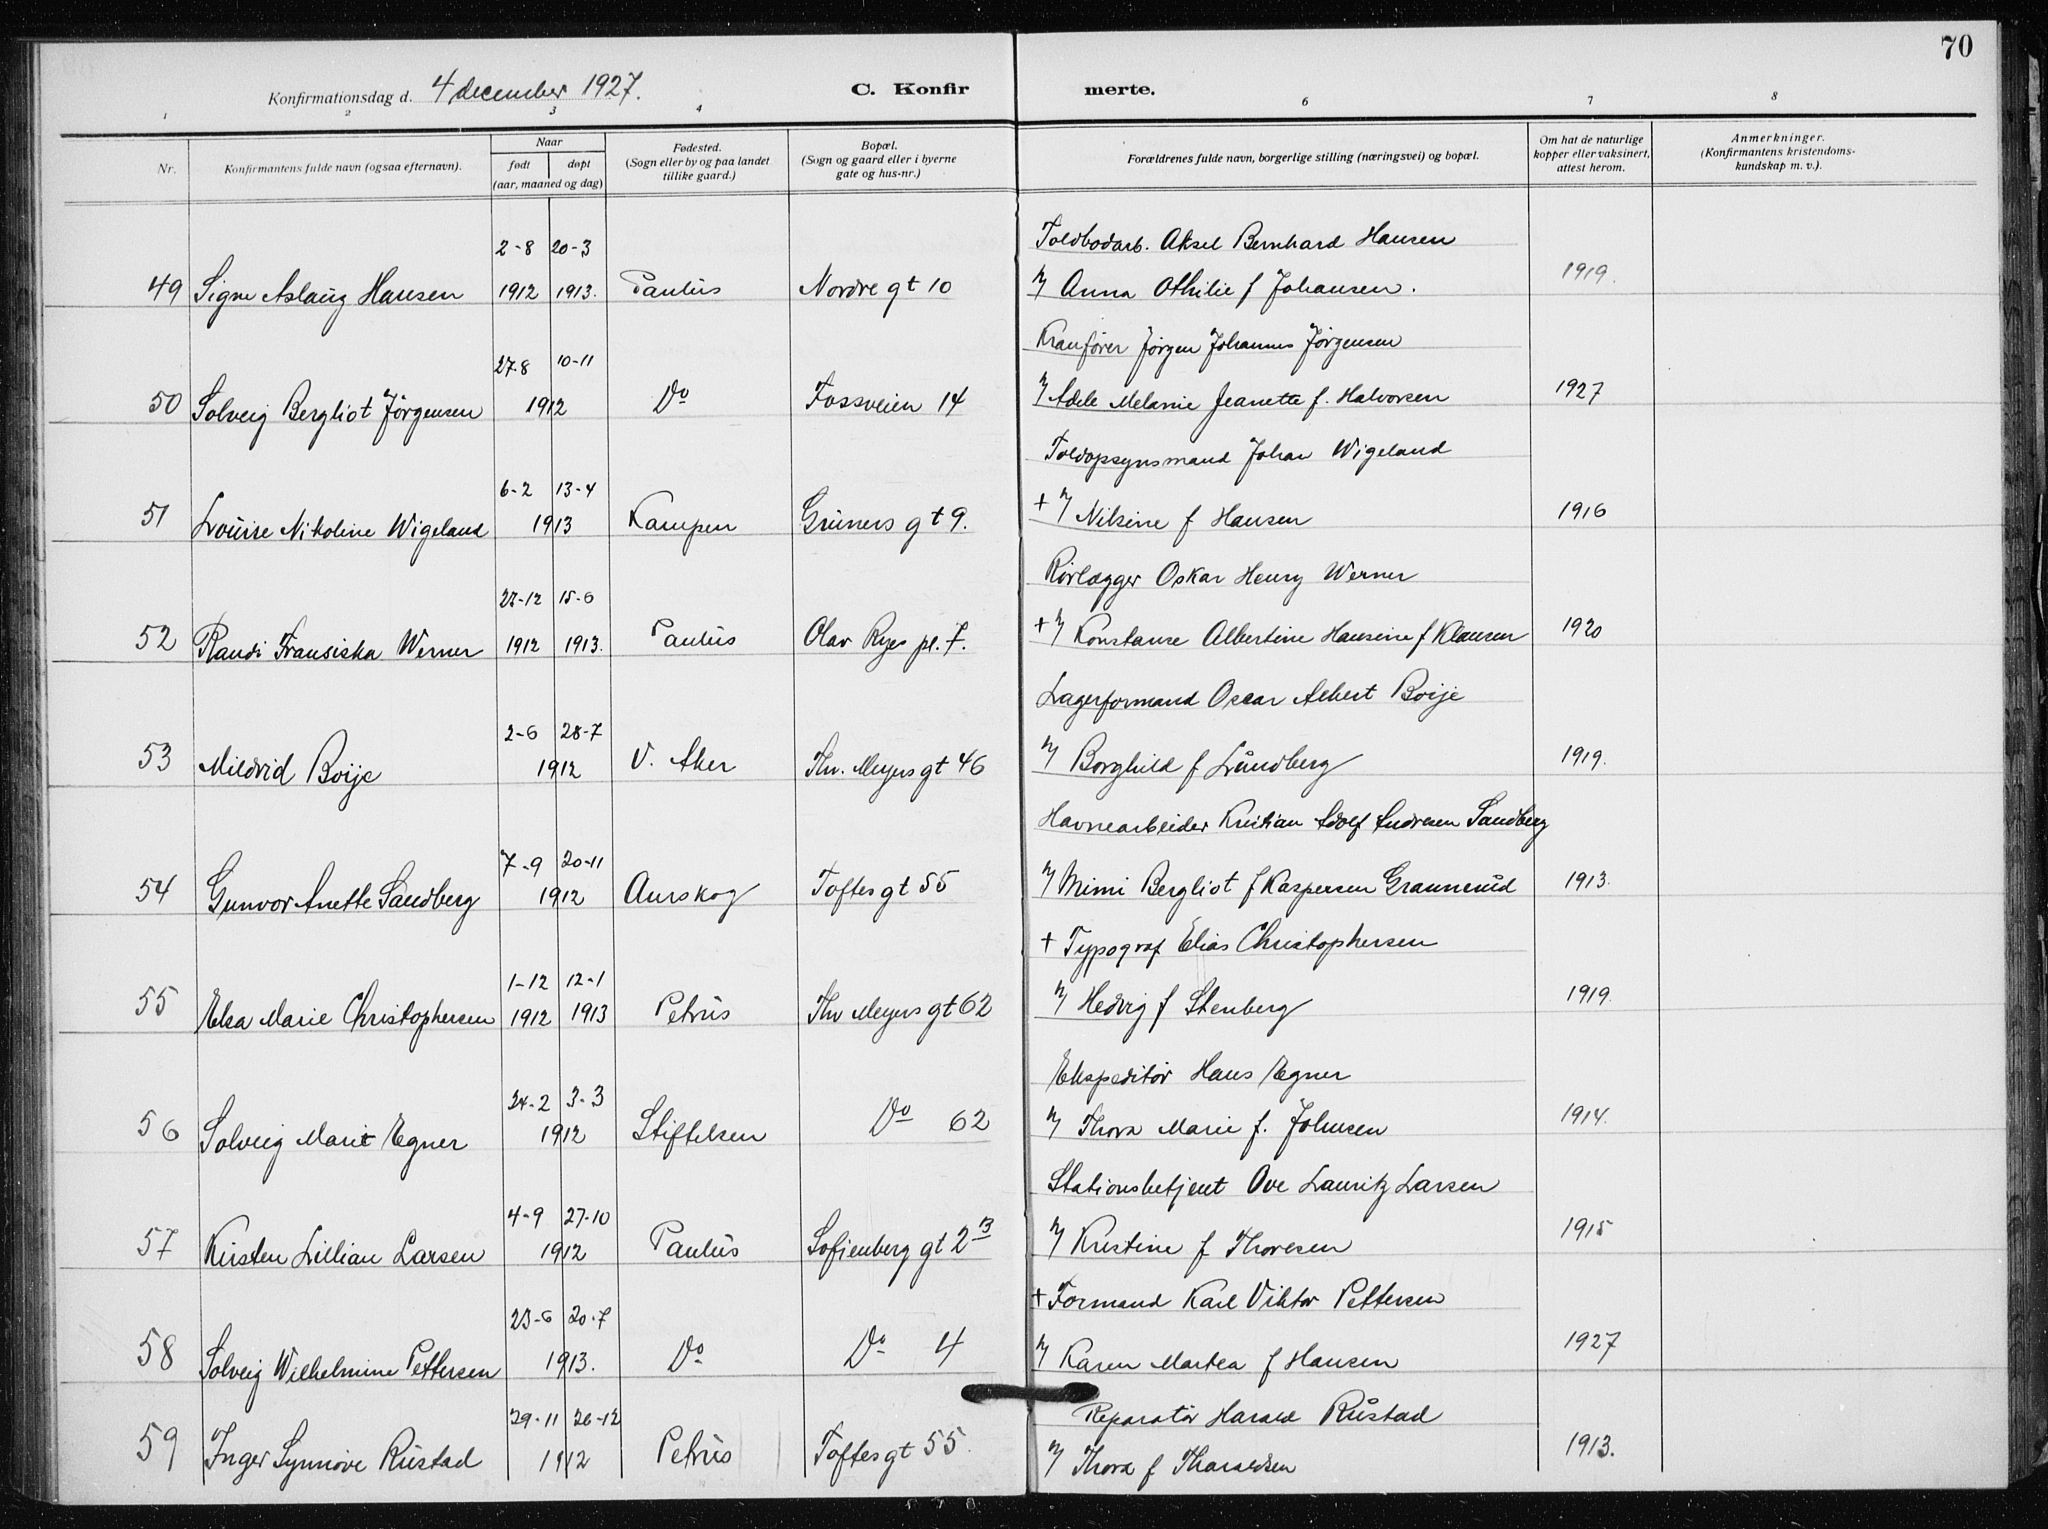 70
Konfirmationsdag d. 4 december 1927. C. Konfirmerte.
1 2 3 4 6 7 8
Nr. Konfirmantens fulde navn (ogsaa efternavn). Naar født døpt (aar, maaned og dag) Fødested. (Sogn eller by og paa landet tillike gaard.) Bopæl. (Sogn og gaard eller i byerne gate og hus-nr.) Forældrenes fulde navn, borgerlige stilling (næringsvei) og bopæl. Om hat de naturlige kopper eller vaksinert, attest herom. Anmerkninger. (Konfirmantens kristendomskundskap m. v.).
2-8 20-3 Toldbodarb. Aksel Bernhard Hansen
49 Signe Aslaug Hansen 1912 1913. Paulus Nordre gt 10 Anna Othilie f Johansen. 1919.
27-8 10-11 Kranfører Jørgen Johannes Jørgensen
50 Solveig Bergliot Jørgensen 1912 Do Fossveien 14 Adele Melanie Jeanette f. Halvorsen 1927
6-2 13-4 Toldopsynsmand Johan Wigeland
51 Louise Nikoline Wigeland 1913 Kampen Grüners gt 9. + Nilsine f Hansen 1916
27-12 15-6 Rørlægger Oskar Henry Werner
52 Randi Fransiska Werner 1912 1913. Paulus Olav Ryes pl. 7. + Konstanse Albertine Hansine f Klausen 1920
2-6 28-7 Lagerformand Oscar Albert Boije
53 Mildrid Boije 1912 V. Aker Thv. Meyers gt 46 Borghild f Lundberg 1919.
7-9 20-11 Havnearbeider Kristian Adolf Andresen Sandberg
54 Gunvor Anette Sandberg 1912 Aurskog Toftes gt 55 Mimi Bergliot f Kaspersen Grannerud 1913.
1-12 12-1 + Typograf Elias Christophersen
55 Elsa Marie Christophersen 1912 1913 Petrus Thv Meyers gt 62 Hedvig f Stenberg 1919.
24-2 3-3 Ekspeditør Hans Egner
56 Solveig Marie Egner 1912 Stiftelsen Do 62 Thora Marie f. Johnsen 1914.
4-9 27-10 Stationsbetjent Ove Lauritz Larsen
57 Kirsten Lillian Larsen 1912 Paulus Sofienberg gt 2 B Kristine f Thoresen 1915
23-6 20-7 + Formand Karl Viktor Pettersen
58 Solveig Wilhelmine Pettersen 1913. Do Do 4 Karen Martea f Hansen 1927
29-11 26-12 Reparatør Harald Rustad
59 Inger Synnøve Rustad 1912 Petrus Toftes gt 55. Thora f Tharaldsen 1913.